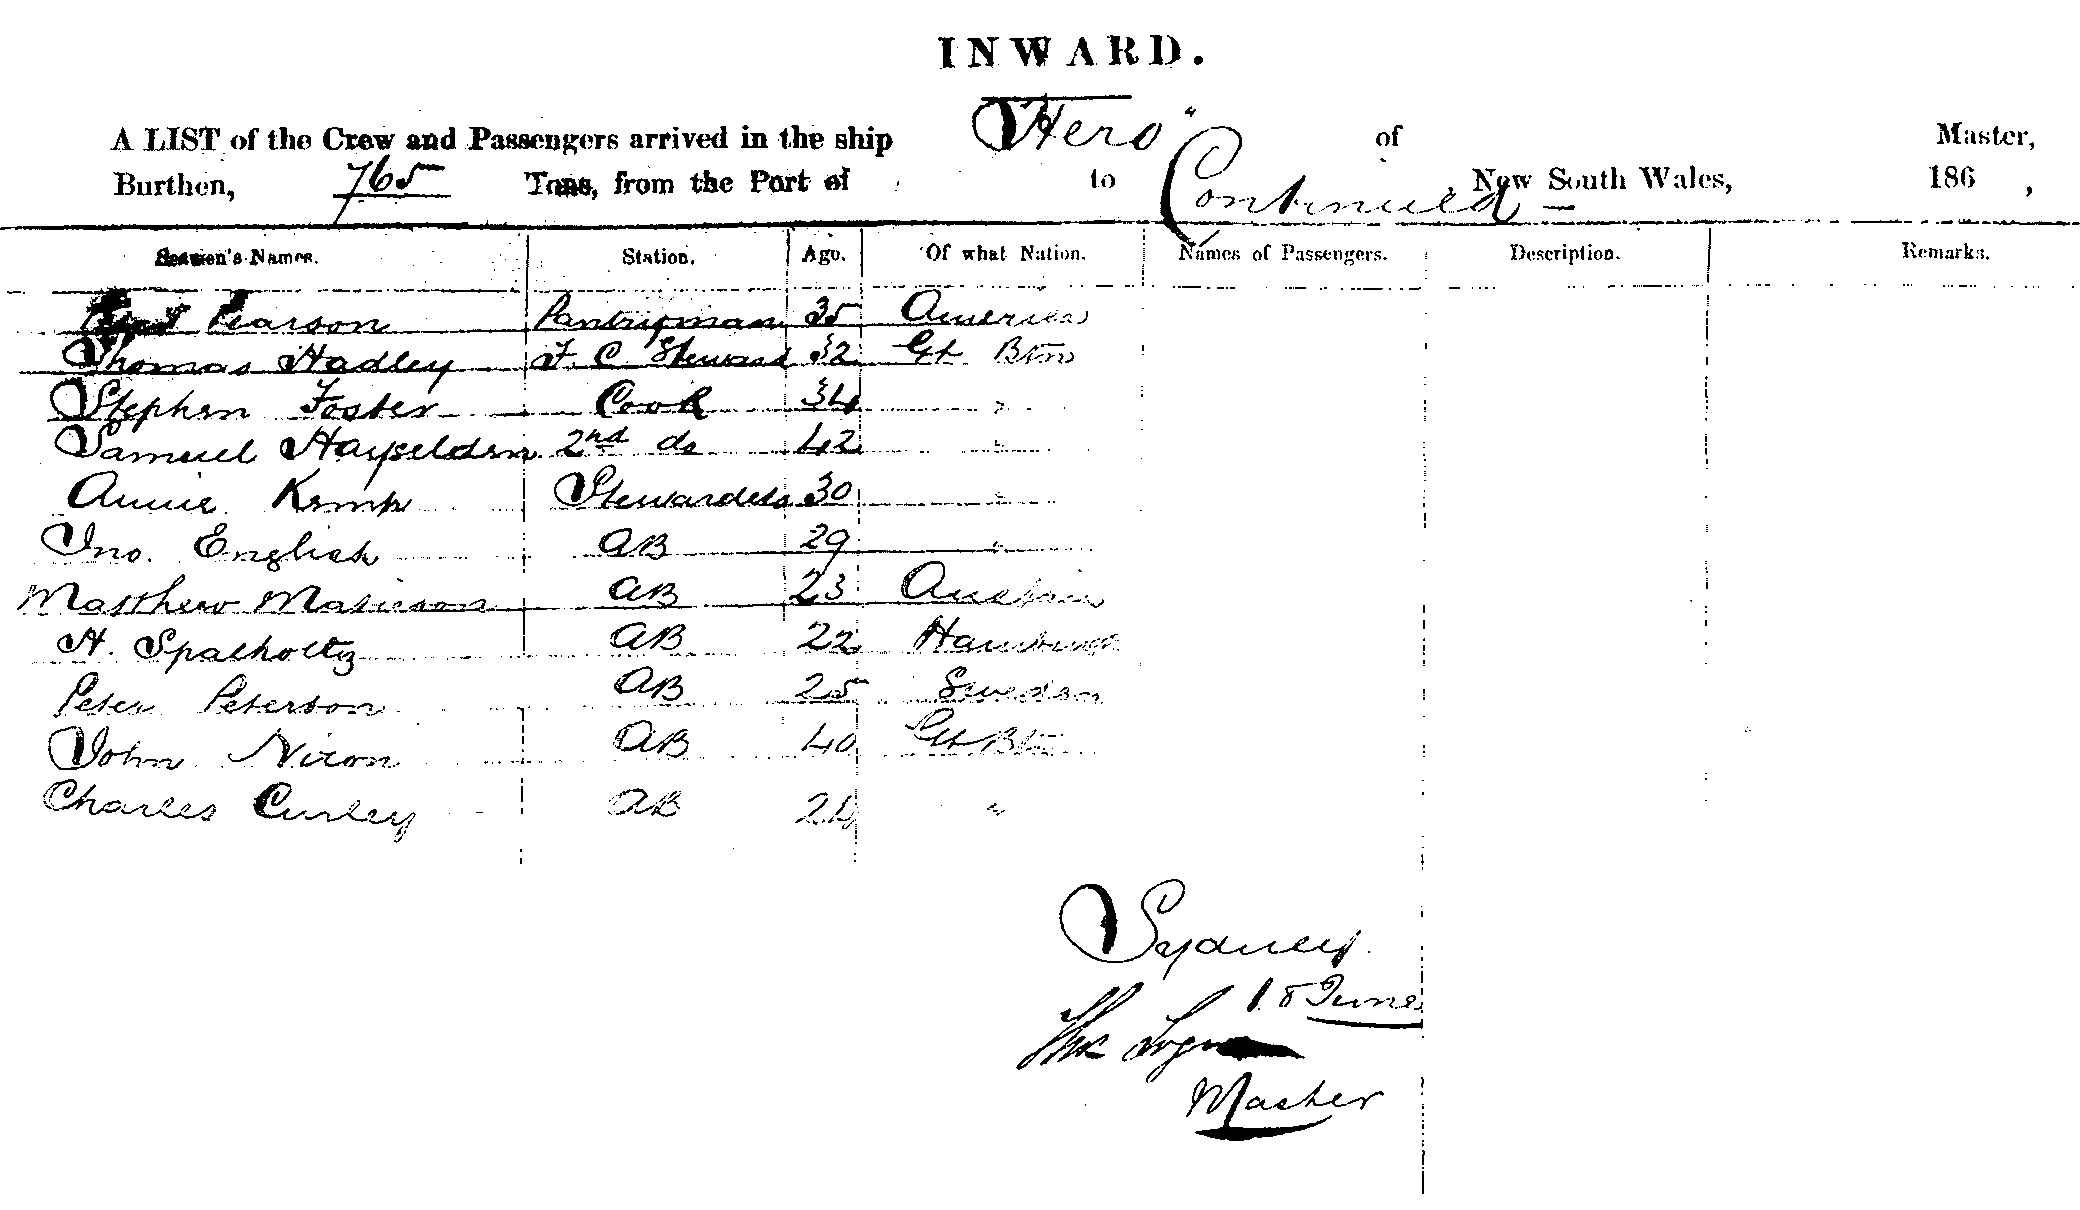 INWARD.
A LIST of the Crew and Passengers arrived in the ship "Hero" of Master,
Burthen, 765 Tons, from the Port of to Continued New South Wales, 186 ,
Seamen's Names. Station. Age. Of what Nation. Names of Passengers. Description. Remarks.
Pearson Pantryman 35 America
Thomas Hadley F. C Steward 32 Gt Btn
Stephen Foster Cook 34 "
Samuel Hayselden 2nd do 42 "
Annie Kemp Stewardess 30 "
Jno. English AB 29 "
Matthew Matieson AB 23 Austria
H. Spalholtz AB 22 Hamburg
Peter Peterson AB 25 Sweden
John Nixon AB 40 Gt Btn
Charles Curley AB 24 "
Sydney
18 June
Master